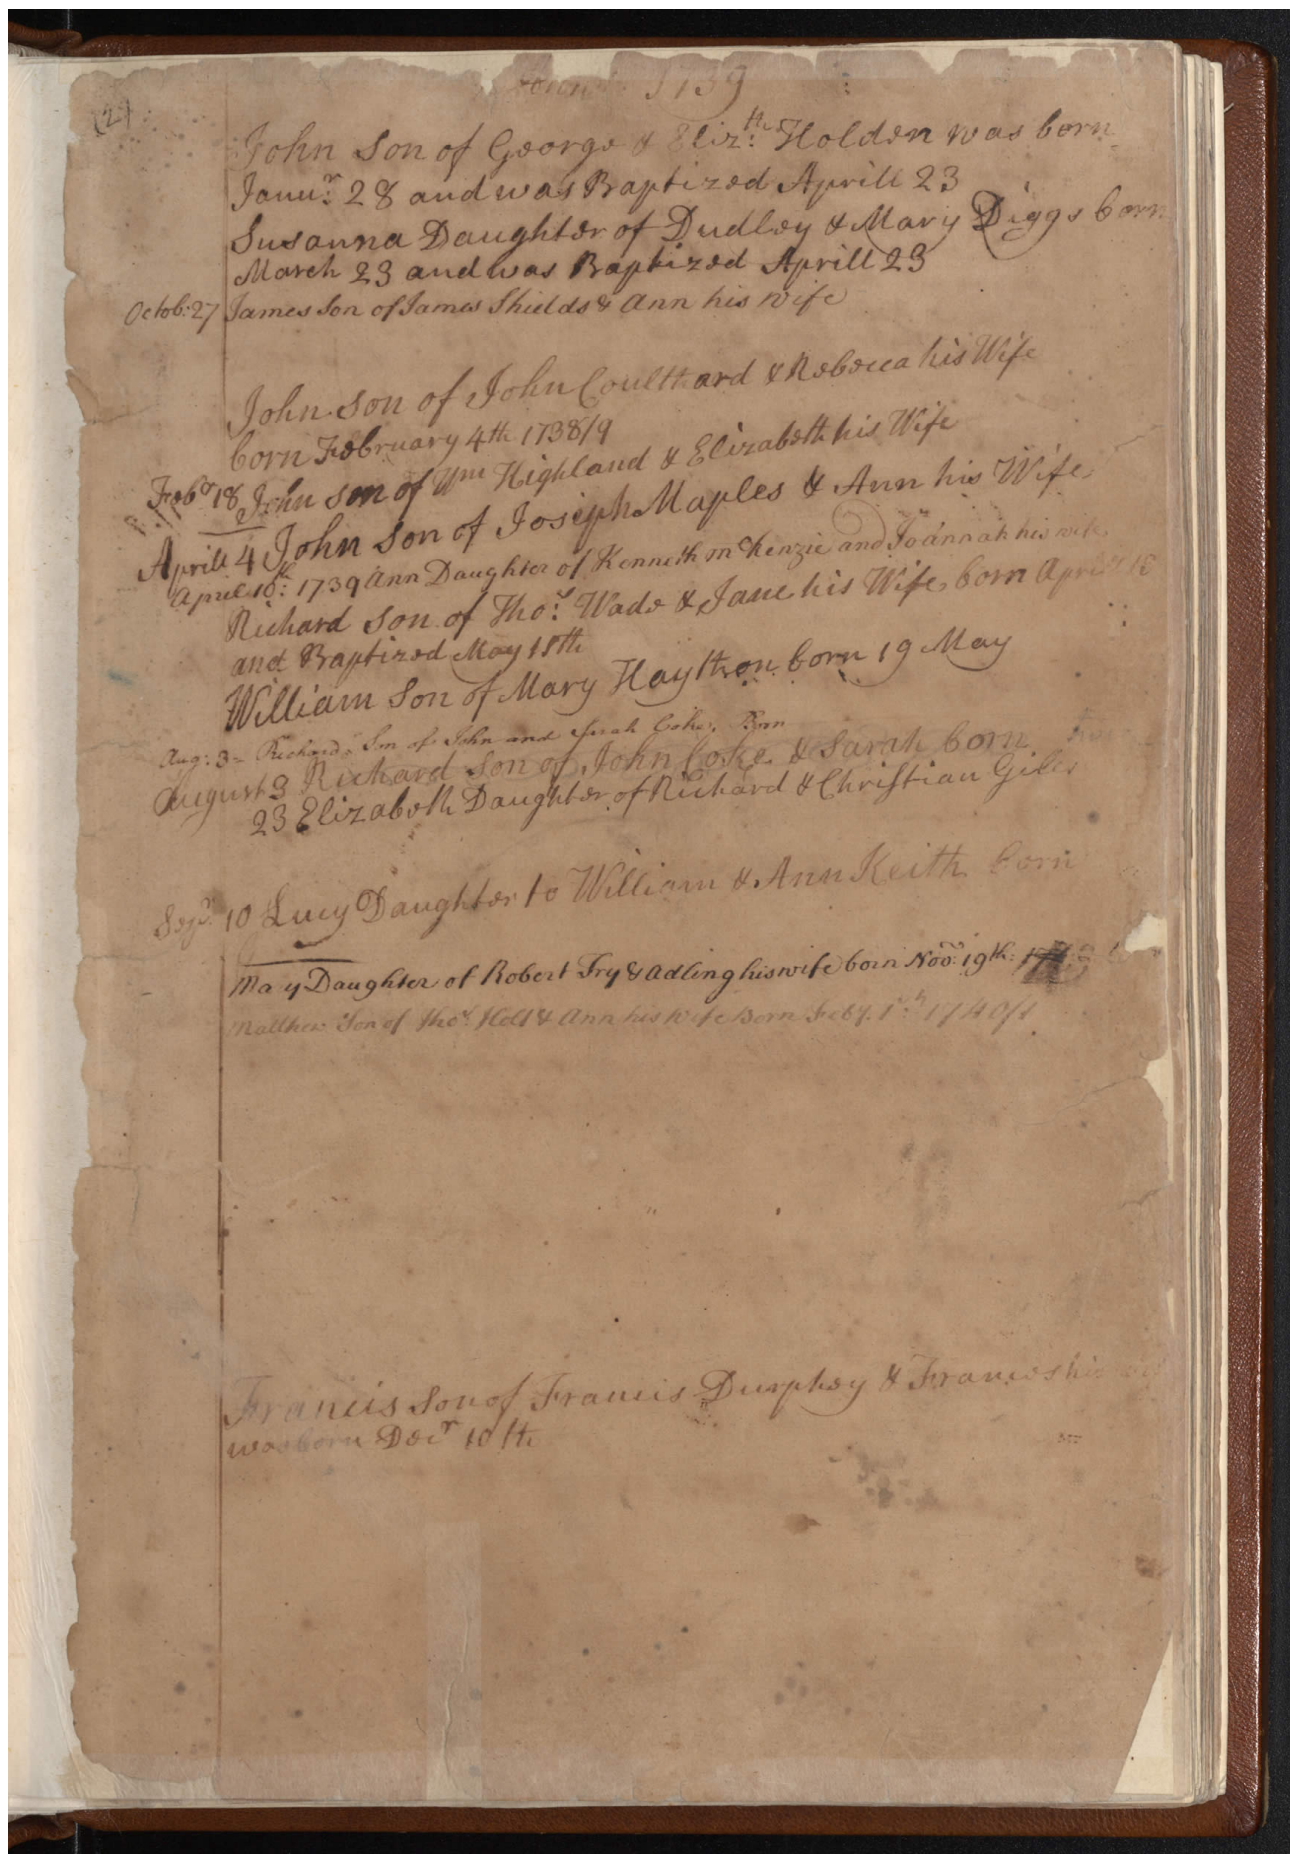 (2)
1739
John Son of George & Eliz:th Holden was born
Janu:r 28 and was Baptized Aprill 23
Susanna Daughter of Dudley & Mary Diggs born
March 23 and was Baptized Aprill 23
Octob: 27 James Son of James Shields & Ann his wife
John Son of John Coulthard & Rebecca his Wife
born February 4th 1738/9
Feb:r 18 John Son of Wm Highland & Elizabeth his Wife
Aprill 4 John Son of Joseph Maples & Ann his Wife
April 10th: 1739 Ann Daughter of Kenneth McKenzie and Joannah his wife
Richard Son of Tho:s Wade & Jane his Wife born Aprill 18
and Baptized May 18th
William Son of Mary Haythron born 19 May
Aug: 3 - Richard Son of John and Sarah Coke, Born
August 3 Richard Son of John Coke & Sarah born
23 Elizabeth Daughter of Richard & Christian Giles
Sep:r 10 Lucy Daughter to William & Ann Keith born
May Daughter of Robert Fry & Adling his wife born Nov: 19th:
Matthew Son of Tho:s Holt & Ann his wife Born Feby. 1740/1
Francis Son of Francis Durphey & Frances his
was born Decr 10th